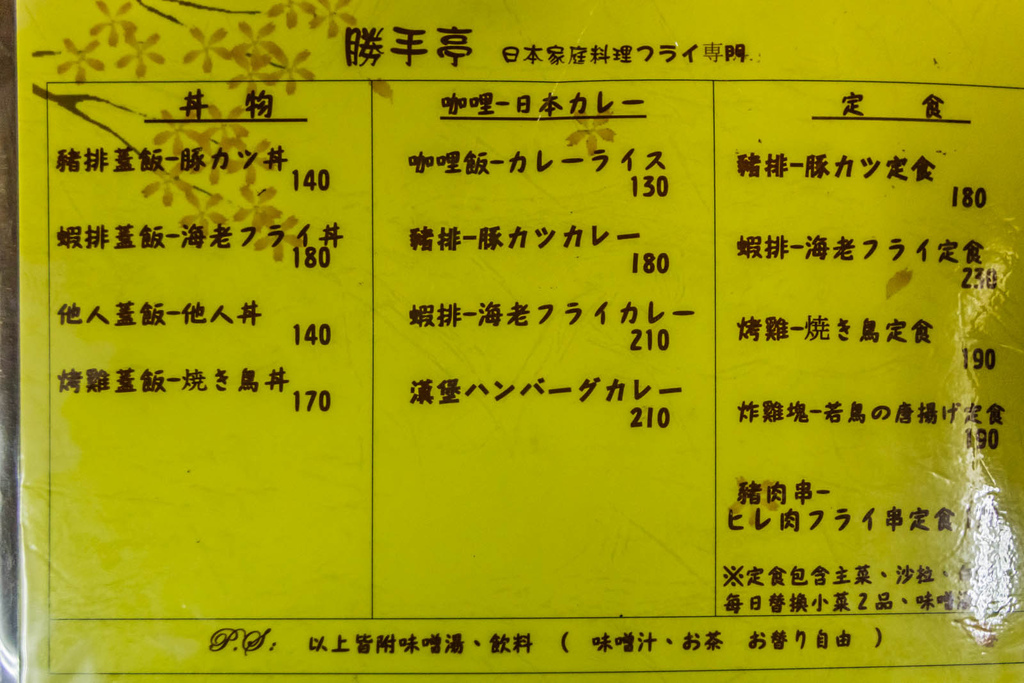 勝手亭 日本家庭料理フライ專門
丼物
豬排蓋飯-豚カツ丼
140
蝦排蓋飯-海老フライ丼
180
他人蓋飯-他人丼
140
烤雞蓋飯-焼き鳥丼
170
咖哩-日本カレー
咖哩飯-カレーライス
130
豬排-豚カツカレー
180
蝦排-海老フライカレー
210
漢堡ハンバーグカレー
210
定食
豬排-豚カツ定食
180
蝦排-海老フライ定食
230
烤雞-焼き鳥定食
190
炸雞塊-若鳥の唐揚げ定食
190
豬肉串-
ヒレ肉フライ串定食
※定食包含主菜、沙拉、
每日替換小菜2品、味噌
P.S: 以上皆附味噌湯、飲料 ( 味噌汁、お茶 お替り自由 )